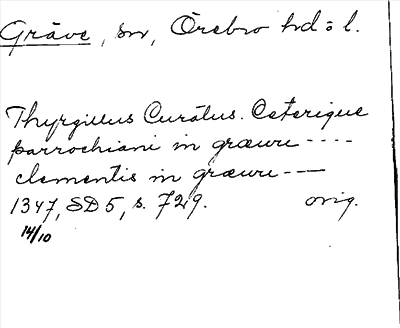 Gräve, sn, Örebro hd: l.
Thyrgillus Curatus. Ceterique
parrochiani in græwu ----
clementis in græwu ---
1347, SD 5, s. 729. orig.
14/10